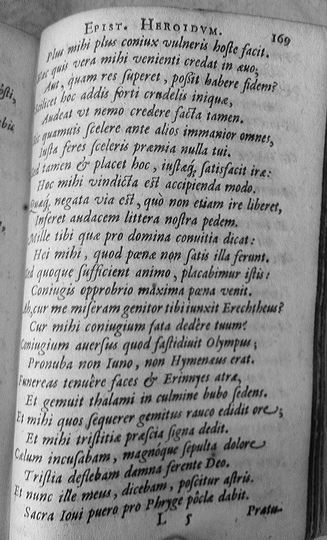 EPIST. HEROIDVM. 169
Plus mihi plus coniux vulneris hoste facit.
quis vera mihi venienti credat in æuo,
Aut, quam res superet, possit habere fidem?
hoc addis sorti crudelis iniquæ,
Audeat vt nemo credere facta tamen.
quamuis scelere ante alios immanior omnes,
Iusta feres sceleris præmia nulla tui.
tamen & placet hoc, iustæq; satisfacit iræ:
Hoc mihi vindicta est accipienda modo.
negata via est, quò non etiam ire liberet,
Inferet audacem littera nostra pedem.
Mille tibi quæ pro domina conuitia dicat:
Hei mihi, quod pœnæ non satis illa ferunt.
quoque sufficient animo, placabimur istis:
Coniugis opprobrio maxima pœna venit.
Ah, cur me miseram genitor tibi iunxit Erechtheus?
Cur mihi coniugium fata dedère tuum?
Coniugium auersus quod fastidiuit Olympus;
Pronuba non Iuno, non Hymenæus erat.
Funereas tenuère faces & Erinnyes atræ,
Et gemuit thalami in culmine bubo sedens.
Et mihi quos sequerer gemitus rauco edidit ore;
Et mihi tristitiæ præscia signa dedit.
Cælum incusabam, magnóque sepulta dolore
Tristia deflebam damna ferente Deo.
Et nunc ille meus, dicebam, poscitur astris.
Sacra Ioui puero pro Phryge pocla dabit.
L 5 Pratu-